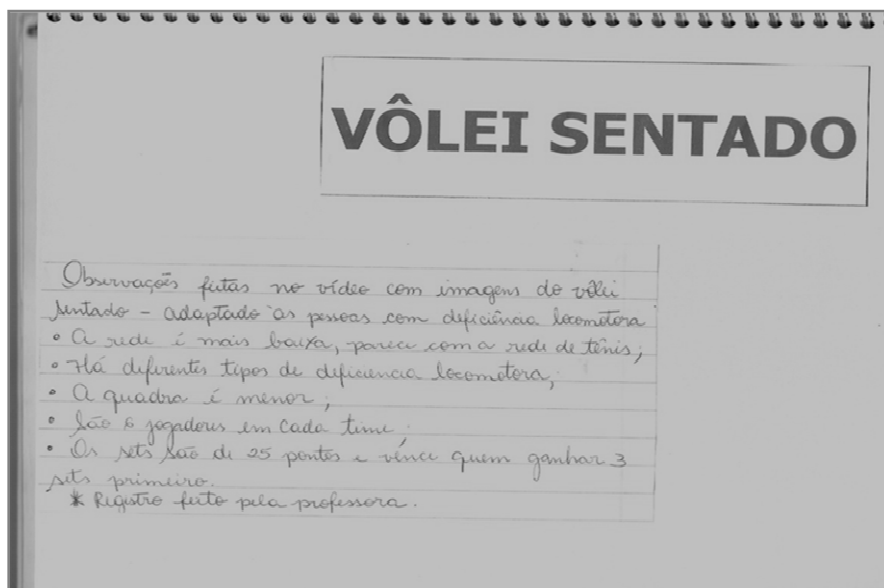 VÔLEI SENTADO
Observações feitas no vídeo com imagens do vôlei
sentado - adaptado às pessoas com deficiência locomotora
• A rede é mais baixa, parece com a rede de tênis;
• Há diferentes tipos de deficiencia locomotora;
• A quadra é menor;
• São 6 jogadores em cada time;
• Os sets são de 25 pontos e vence quem ganhar 3
sets primeiro.
* Registro feito pela professora.